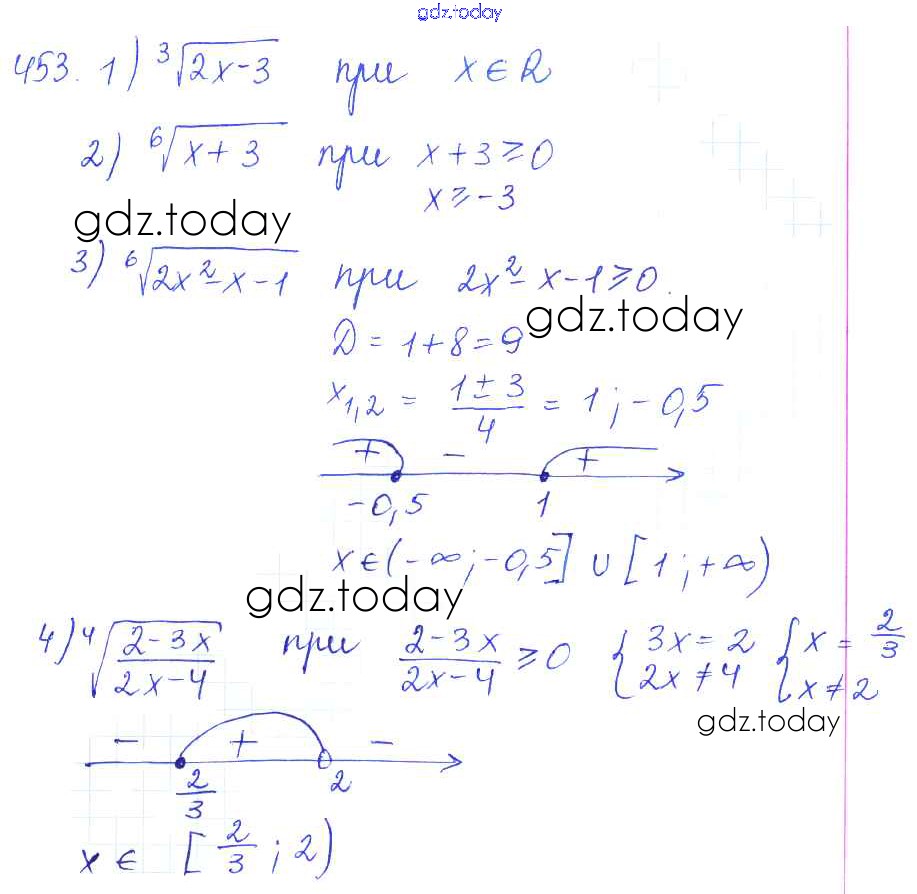 gdz.today
453. 1) ∛(2x-3) при x ∈ R
2) ⁶√(x+3) при x+3 ≥ 0
x ≥ -3
gdz.today
3) ⁶√(2x²-x-1) при 2x²-x-1 ≥ 0.
gdz.today
D = 1+8 = 9
x₁,₂ = (1±3)/4 = 1; -0,5
+ - +
-0,5 1
x ∈ (-∞; -0,5] ∪ [1; +∞)
gdz.today
4) ⁴√((2-3x)/(2x-4)) при (2-3x)/(2x-4) ≥ 0 { 3x = 2 { x = 2/3
2x ≠ 4 x ≠ 2
gdz.today
- + -
2/3 2
x ∈ [2/3; 2)